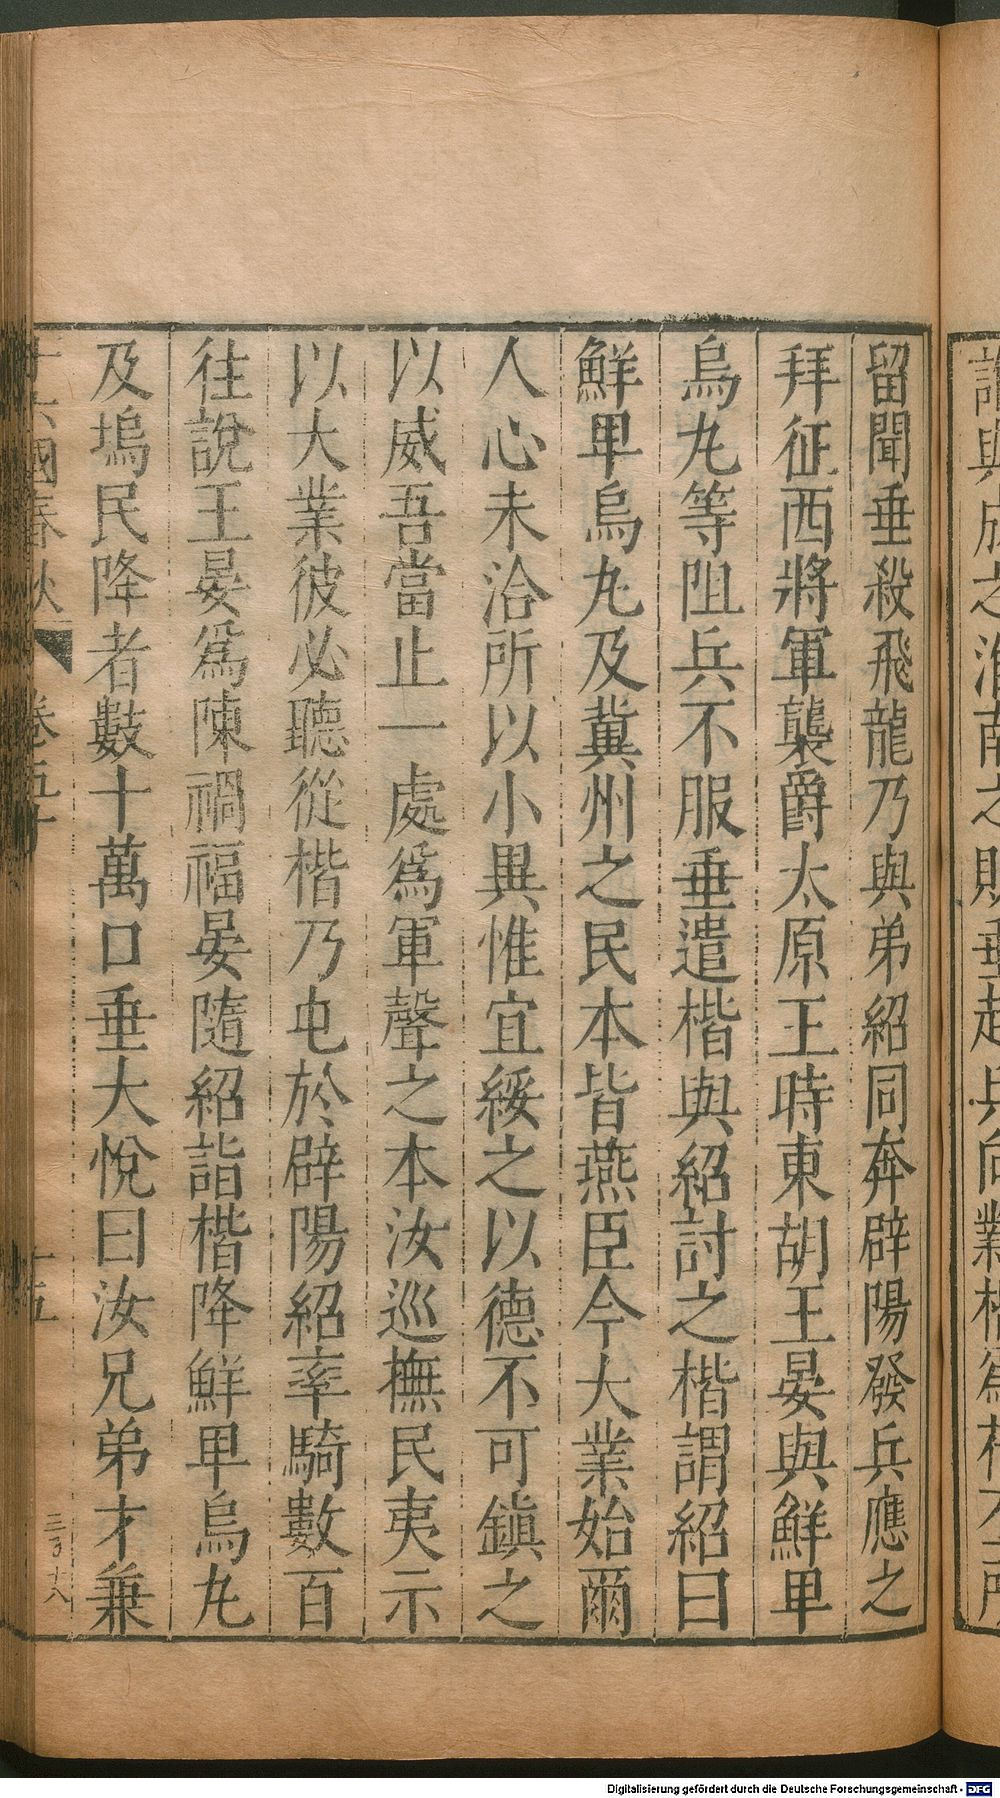 與成之淮南之敗垂起兵向業楷爲
留聞垂殺飛龍乃與弟紹同奔辟陽發兵應之
拜征西將軍襲爵太原王時東胡王晏與鮮卑
烏丸等阻兵不服垂遣楷與紹討之楷謂紹曰
鮮卑烏丸及冀州之民本皆燕臣今大業始爾
人心未洽所以小異惟宜綏之以德不可鎮之
以威吾當止一處爲軍聲之本汝巡撫民夷示
以大業彼必聽從楷乃屯於辟陽紹率騎數百
往說王晏爲陳禍福晏隨紹詣楷降鮮卑烏丸
及塢民降者數十萬口垂大悅曰汝兄弟才兼
十六國春秋 卷五十 十五 三百十八
Digitalisierung gefördert durch die Deutsche Forschungsgemeinschaft - DFG